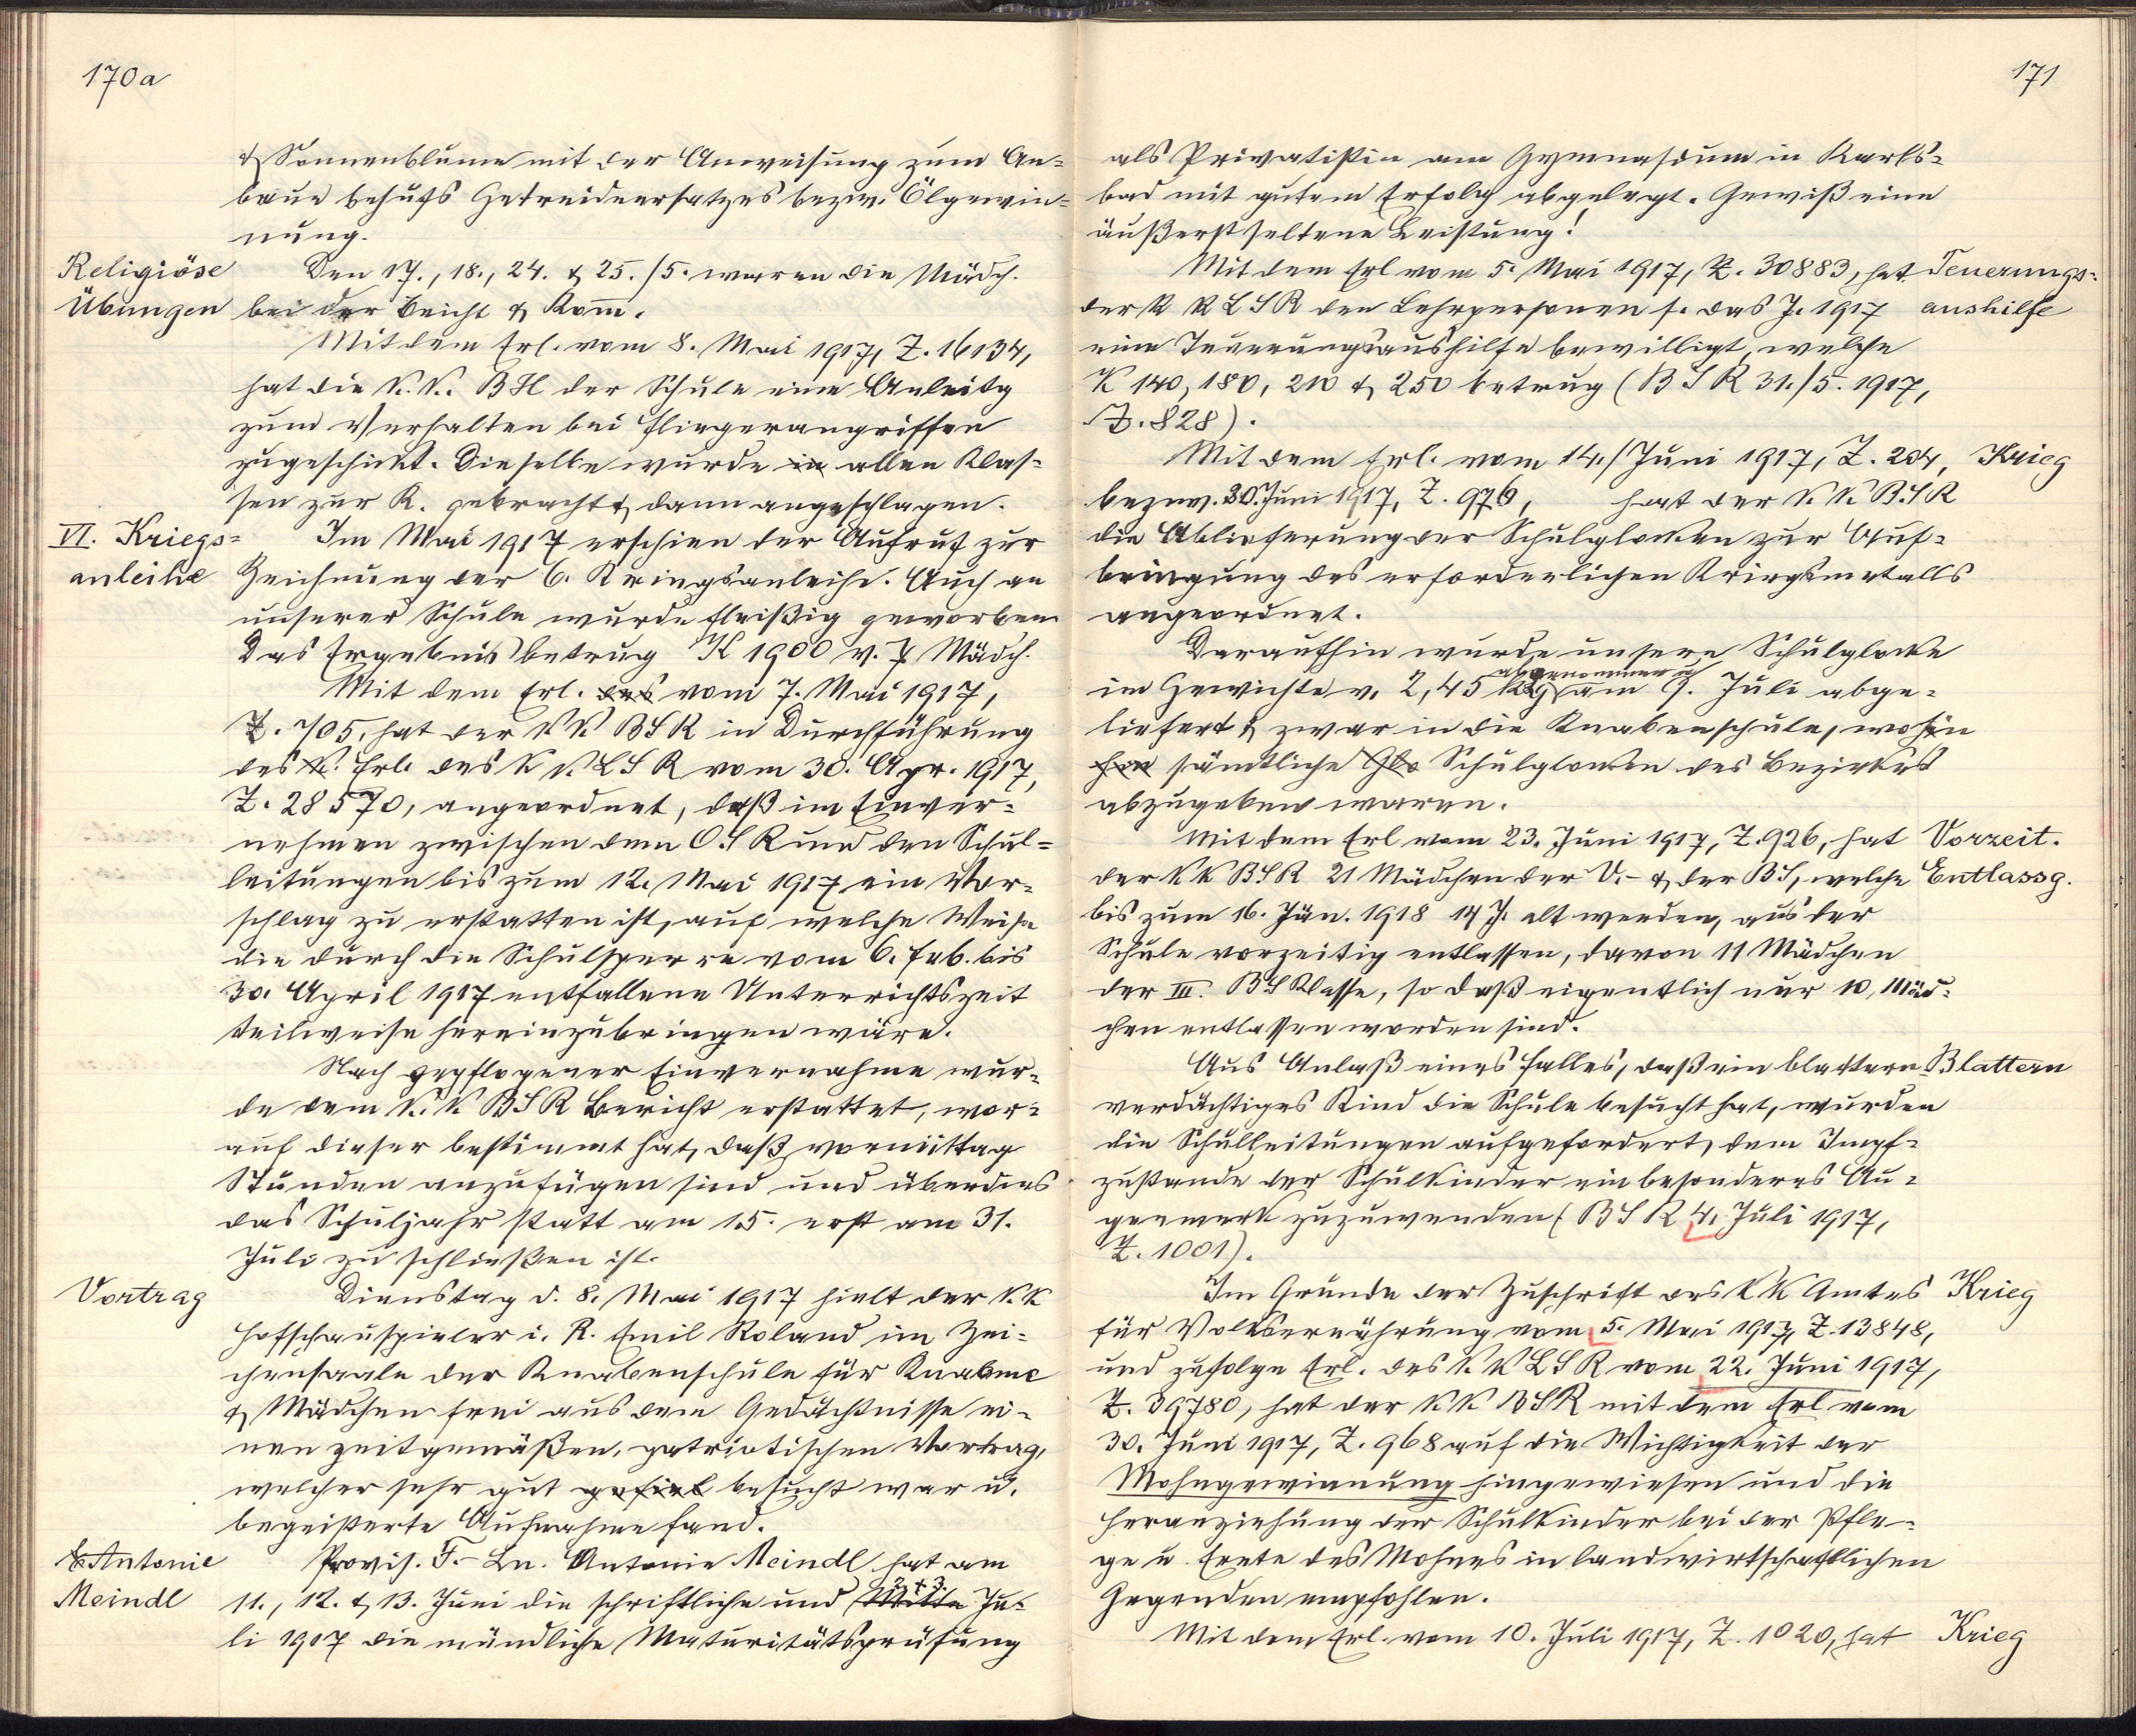 170a
& Sonnenblume mit der Anweisung zum An=
baue behufs Getreideersatzes bezw. Ölgewin=
nung.
Religiöse Den 17., 18., 24. & 25./5. waren die Mädch.
Übungen bei der Beicht & Komm.
Mit dem Erl. vom 8. Mai 1917, Z. 16134,
hat die k. k. BH der Schule eine Anleitg
zum Verhalten bei Fliegerangriffen
zugeschickt. Dieselbe wurde in allen Klas=
sen zur K. gebracht & dann angeschlagen.
VI. Kriegs= Im Mai 1917 erschien der Aufruf zur
anleihe Zeichnung der 6. Kriegsanleihe. Auch an
unserer Schule wurde fleißig geworben
Das Ergebnis betrug K 1900 v. 7 Mädch.
Mit dem Erl. des vom 7. Mai 1917,
Z. 705, hat der k k BSR in Durchführung
des k. Erl. des k k LSR vom 30. Apr. 1917,
Z. 28570, angeordnet, daß im Einver=
nehmen zwischen dem OSR und den Schul=
leitungen bis zum 12. Mai 1917 ein Vor=
schlag zu erstatten ist, auf welche Weise
die durch die Schulsperre vom 6. Feb. bis
30. April 1917 entfallene Unterrichtszeit
teilweise hereinzubringen wäre.
Nach gepflogener Einvernahme wur=
de dem k. k BSR Bericht erstattet, wor=
auf dieser bestimmt hat, daß vormittag
Stunden anzufügen sind und überdies
das Schuljahr statt am 15. erst am 31.
Juli zu schließen ist.
Vortrag Dienstag d. 8. Mai 1917 hielt der k. k
Hofschauspieler i. R. Emil Roland im Zei=
chensaale der Knabenschule für Knaben
& Mädchen frei aus dem Gedächtnisse ei=
nen zeitgemäßen, patriotischen Vortrag,
welcher sehr gut gefiel besucht war u.
begeisterte Aufnahme fand.
Antonie Provis. F.-Ln. Antonie Meindl hat am
2. + 3.
Meindl 11., 12. & 13. Juni die schriftliche und Mitte Ju=
li 1917 die mündliche Maturitätsprüfung
171
als Privatistin am Gymnasium in Karls=
bad mit gutem Erfolg abgelegt. Gewiß eine
äußerst seltene Leistung!
Mit dem Erl vom 5. Mai 1917, Z. 30883, hat Teuerungs=
der k k LSR den Lehrpersonen f. das J. 1917 aushilfe
eine Teuerungsaushilfe bewilligt, welche
K 140, 180, 210 & 250 betrug (BSR 31./5. 1917,
Z. 828).
Mit dem Erl. vom 14./Juni 1917, Z. 204, Krieg
bezw. 30. Juni 1917, Z. 976, hat der k. k. B.SR
die Ablieferung der Schulglocken zur Auf=
bringung des erforderlichen Kriegsmetalls
angeordnet.
Daraufhin wurde unsere Schulglocke
abgenommen u
im Gewichte v. 2,45 kg am 9. Juli abge=
liefert & zwar in die Knabenschule, wohin
sämtliche Glo Schulglocken des Bezirkes
abzugeben waren.
Mit dem Erl vom 23. Juni 1917, Z. 926, hat Vorzeit.
der k k BSR 21 Mädchen der V.- & der BS, welche Entlassg.
bis zum 16. Jän. 1918 14 J. alt werden, aus der
Schule vorzeitig entlassen, davon 11 Mädchen
der III. BS Klasse, so daß eigentlich nur 10, Mäd=
chen entlassen worden sind.
Aus Anlaß eines Falles, daß ein blattern= Blattern
verdächtiges Kind die Schule besucht hat, wurden
die Schulleitungen aufgefordert, dem Impf=
zustande der Schulkinder ein besonderes Au=
genmerk zuzuwenden (BSR 4. Juli 1917,
Z. 1001).
Im Grunde der Zuschrift des k k Amtes Krieg
für Volksernährung vom 5. Mai 1917, Z. 13848,
und zufolge Erl. des k. k LSR vom 22. Juni 1917,
Z. 39780, hat der k. k. BSR mit dem Erl vom
30. Juni 1917, Z. 968 auf die Wichtigkeit der
Mohngewinnung hingewiesen und die
Heranziehung der Schulkinder bei der Pfle=
ge u. Ernte des Mohnes in landwirtschaftlichen
Gegenden empfohlen.
Mit dem Erl. vom 10. Juli 1917, Z. 1020, hat Krieg